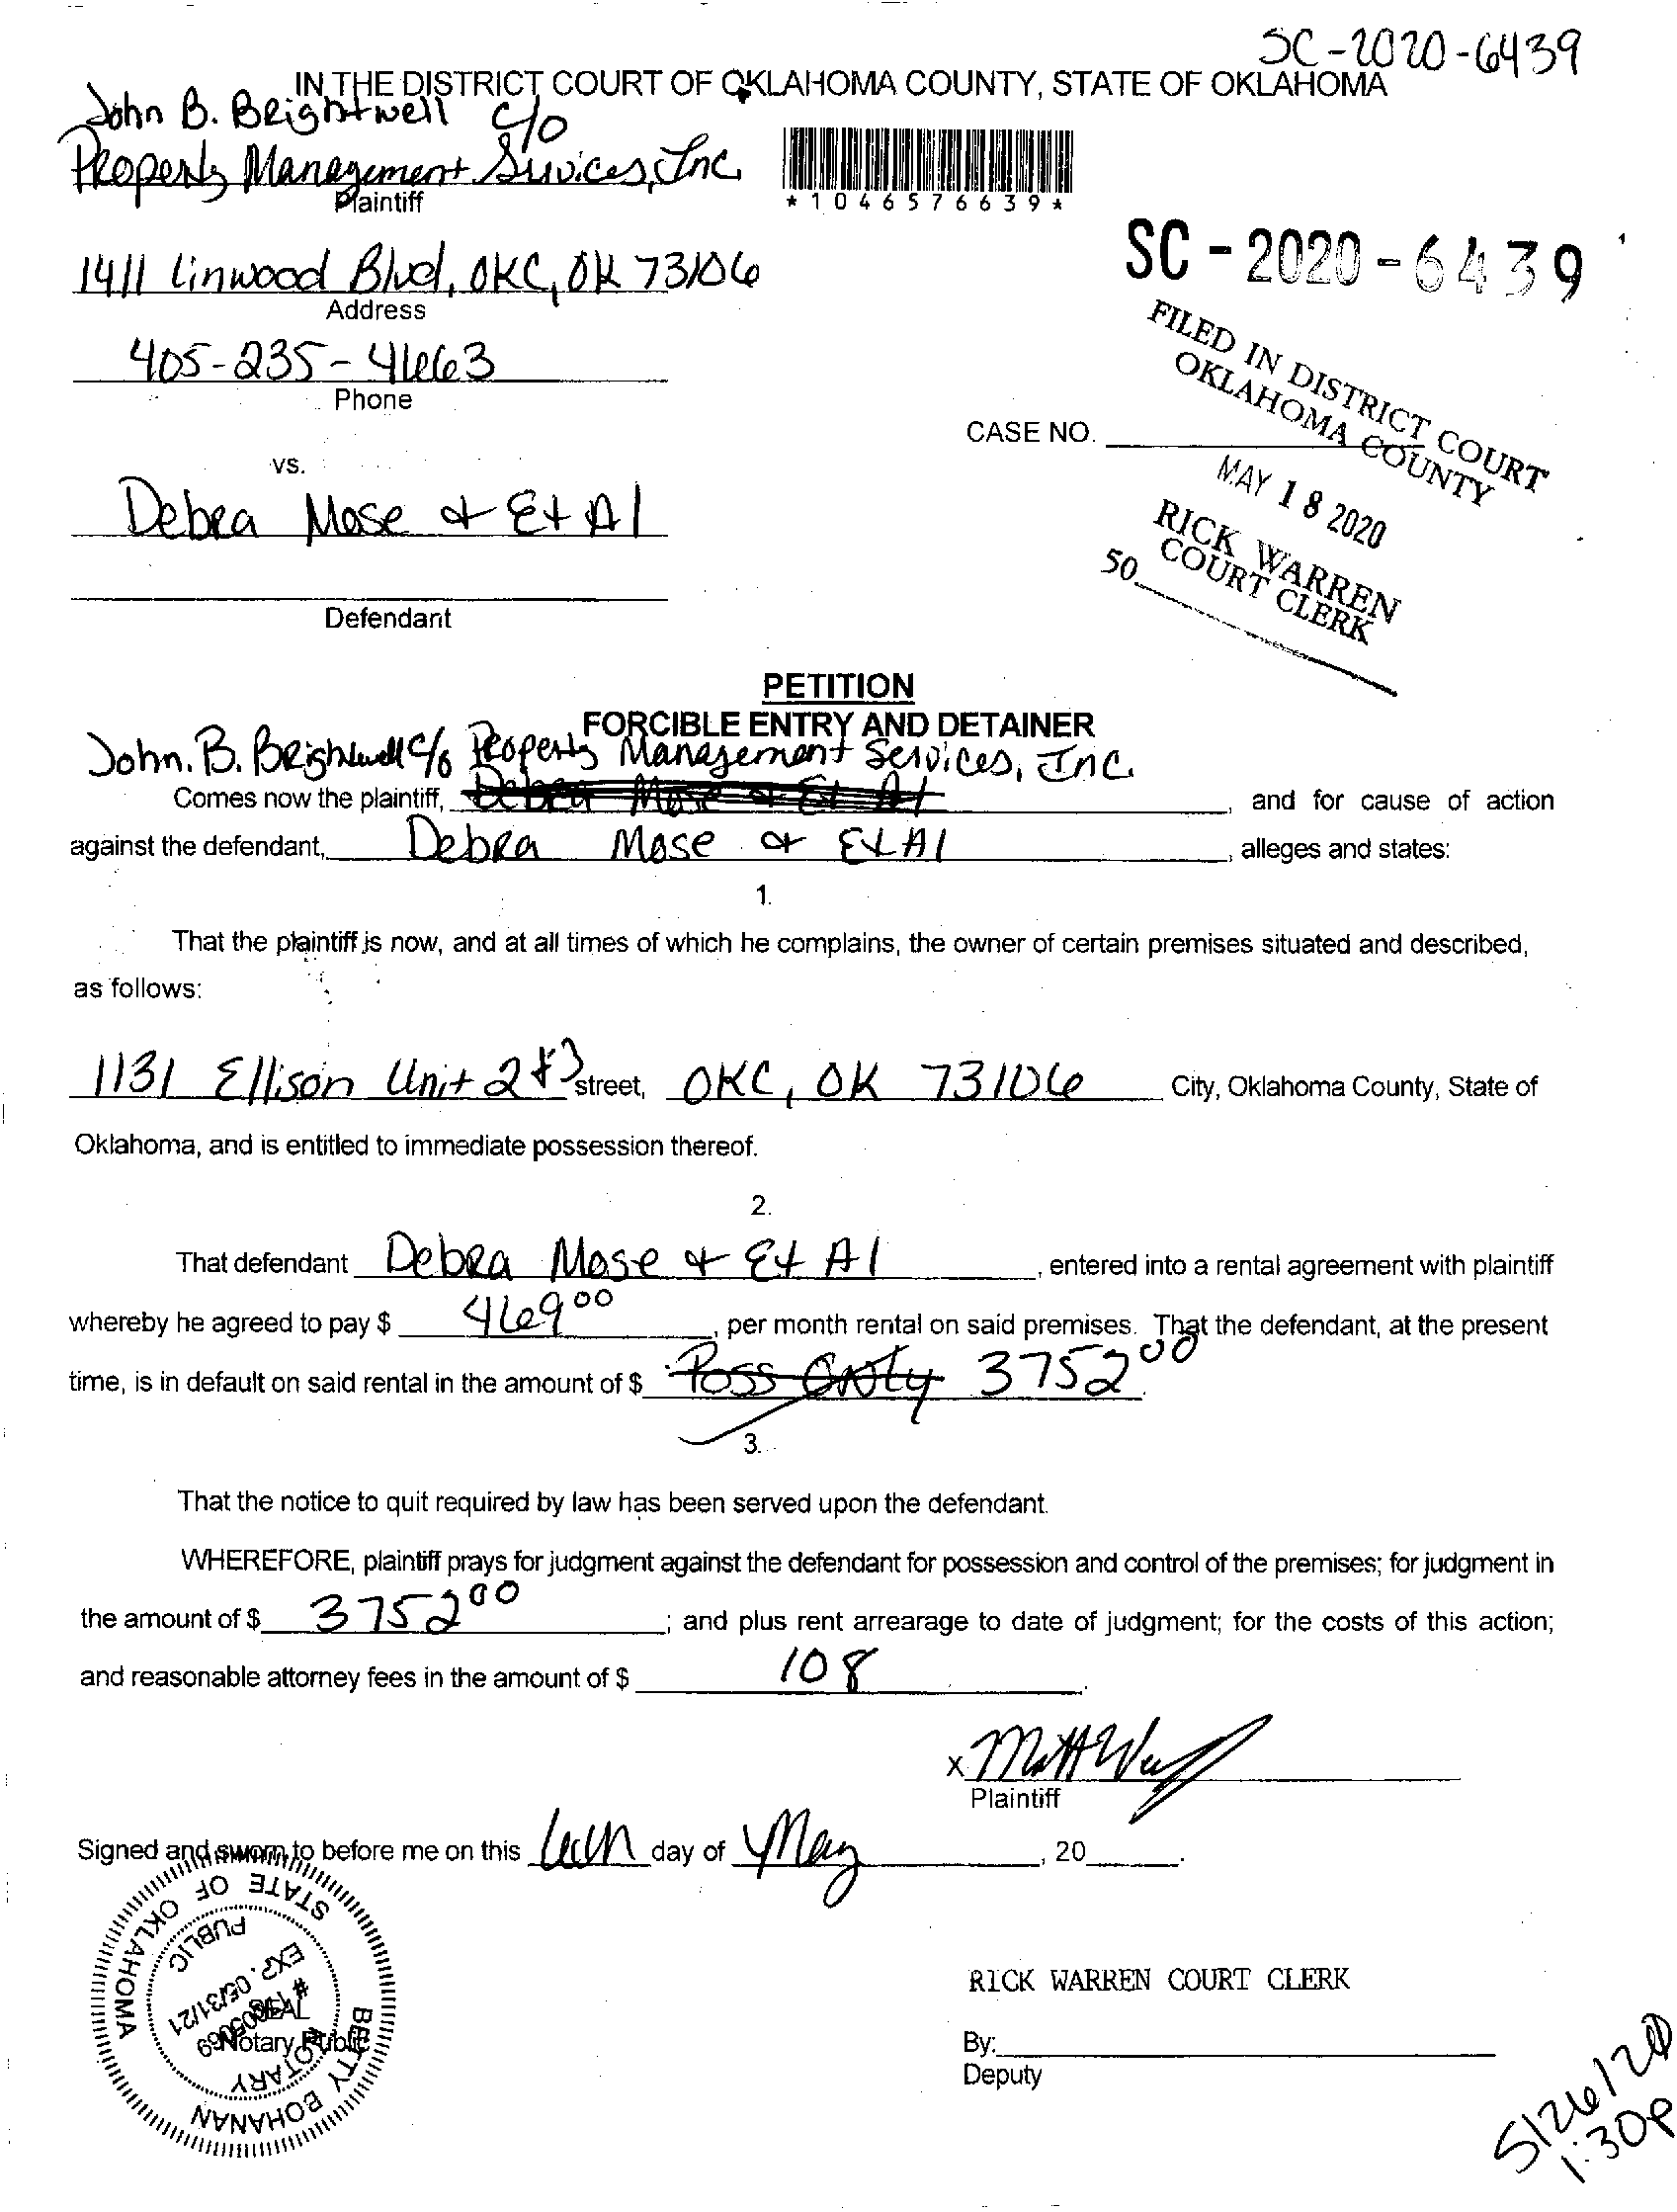 SC-2020-6439
IN THE DISTRICT COURT OF OKLAHOMA COUNTY, STATE OF OKLAHOMA
John B. Brightwell c/o
Property Management Services, Inc.
Plaintiff
*1046576639*
1411 Linwood Blvd, OKC, OK 73106
Address
SC-2020-6439
405-235-4663
Phone
FILED IN DISTRICT COURT
OKLAHOMA COUNTY
CASE NO.
MAY 18 2020
vs.
Debra Mose & Et Al
RICK WARREN
COURT CLERK
50
Defendant
PETITION
FORCIBLE ENTRY AND DETAINER
John. B. Brightwell c/o Property Management Services, Inc.
Comes now the plaintiff, Debra Mose & Et Al, and for cause of action
against the defendant, Debra Mose & Et Al, alleges and states:
1.
That the plaintiff is now, and at all times of which he complains, the owner of certain premises situated and described,
as follows:
1131 Ellison Unit 2 & 3 street, OKC, OK 73106 City, Oklahoma County, State of
Oklahoma, and is entitled to immediate possession thereof.
2.
That defendant Debra Mose & Et Al, entered into a rental agreement with plaintiff
whereby he agreed to pay $ 469 00, per month rental on said premises. That the defendant, at the present
time, is in default on said rental in the amount of $ Poss Only 3752 00.
3.
That the notice to quit required by law has been served upon the defendant.
WHEREFORE, plaintiff prays for judgment against the defendant for possession and control of the premises; for judgment in
the amount of $ 3752 00; and plus rent arrearage to date of judgment; for the costs of this action;
and reasonable attorney fees in the amount of $ 108.
x
Plaintiff
Signed and sworn to before me on this day of May, 20.
STATE OF OKLAHOMA
PUBLIC
EXP. 05/31/21
SEAL
Notary Public
NOTARY
BETTY BOHANAN
RICK WARREN COURT CLERK
By:
Deputy
5/26/20
1:30p